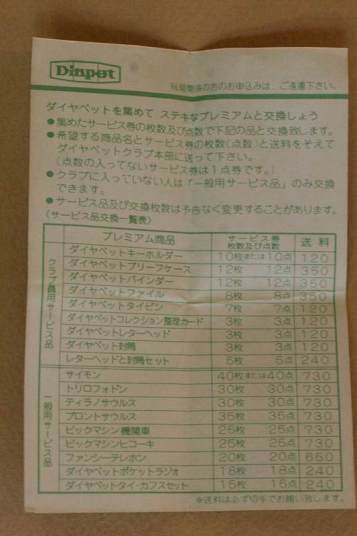 Dinpet
ダイヤペットを集めて ステキなプレミアムと交換しよう
●集めたサービス券の枚数及び点数で下記の品と交換致します。
●希望する商品名とサービス券の枚数(点数)と送料をそえて
ダイヤペットクラブ本部に送って下さい。
(点数の入ってないサービス券は1点券です。)
●クラブに入っていない人は「一般用サービス品」のみ交換
できます。
●サービス品及び交換枚数は予告なく変更することがあります。
〈サービス品交換一覧表〉
プレミアム商品 サービス券枚数及び点数 送料
クラブ員用サービス品
ダイヤペットキーホルダー 10枚または10点 120
ダイヤペットブリーフケース 12枚 12点 350
ダイヤペットバインダー 12枚 12点 350
ダイヤペットファイル 8枚 8点 350
ダイヤペットタイピン 7枚 7点
ダイヤペットコレクション整理カード 3枚 3点 120
ダイヤペットレターヘッド 3枚 3点 120
ダイヤペット封筒 3枚 3点 120
レターヘッドと封筒セット 5枚 5点 240
一般用サービス品
サイモン 40枚または40点 730
トリロフォドン 30枚 30点 730
ティラノサウルス 30枚 30点 730
ブロントサウルス 35枚 35点 730
ビックマシン機関車 25枚 25点 730
ビックマシンヒコーキ 25枚 25点 730
ファンシーテレホン 20枚 20点 650
ダイヤペットポケットラジオ 18枚 18点 240
ダイヤペットタイ・カフスセット 15枚 15点 240
※送料は必ず切手でお願い致します。